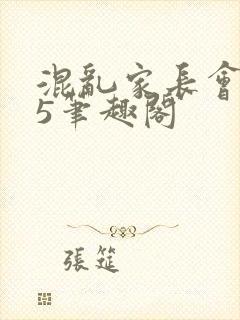 混亂家長會
5筆趣閣
張筵